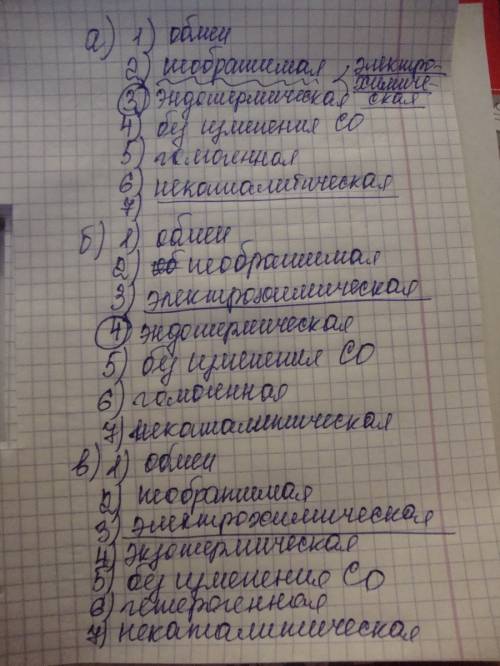 а) 1) обмен
2) необратимая электро-
3) эндотермическая химиче-
ская
4) без изменения СО
5) гомогенная
6) некаталитическая
7)
б) 1) обмен
2) необратимая
3) электрохимическая
4) эндотермическая
5) без изменения СО
6) гомогенная
7) некаталитическая
в) 1) обмен
2) необратимая
3) электрохимическая
4) экзотермическая
5) без изменения СО
6) гетерогенная
7) некаталитическая